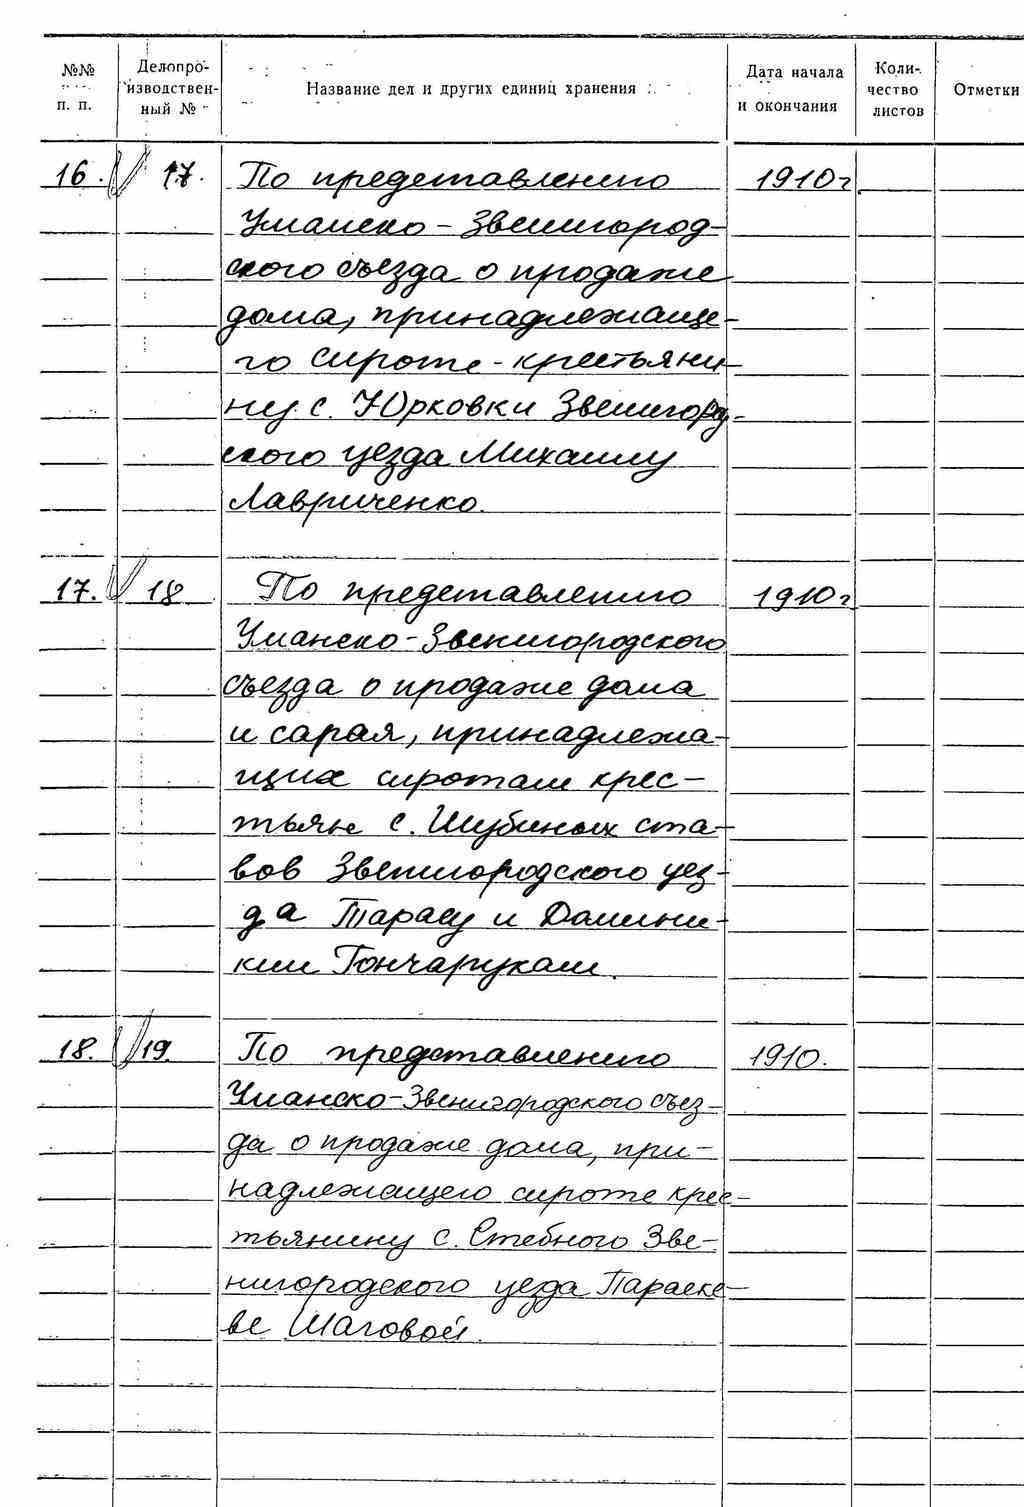 №№ п. п. Делопро-изводствен-ный № Название дел и других единиц хранения Дата начала и окончания Коли-чество листов Отметки
16. 17. По представлению 1910 г
Уманско-Звенигород-
ского съезда о продаже
дома, принадлежаще-
го сироте-крестьяни-
ну с. Юрковки Звенигород-
ского уезда Михаилу
Лавриченко.
17. 18 По представлению 1910 г
Уманско-Звенигородского
съезда о продаже дома
и сарая, принадлежа-
щих сиротам крес-
тьян с. Шубиных ста-
вов Звенигородского уез-
да Тарасу и Домини-
кии Гончарукам.
18. 19. По представлению 1910.
Уманско-Звенигородского съез-
да о продаже дома, при-
надлежащего сироте крес-
тьянину с. Стебного Зве-
нигородского уезда Параске-
ве Шаговой.